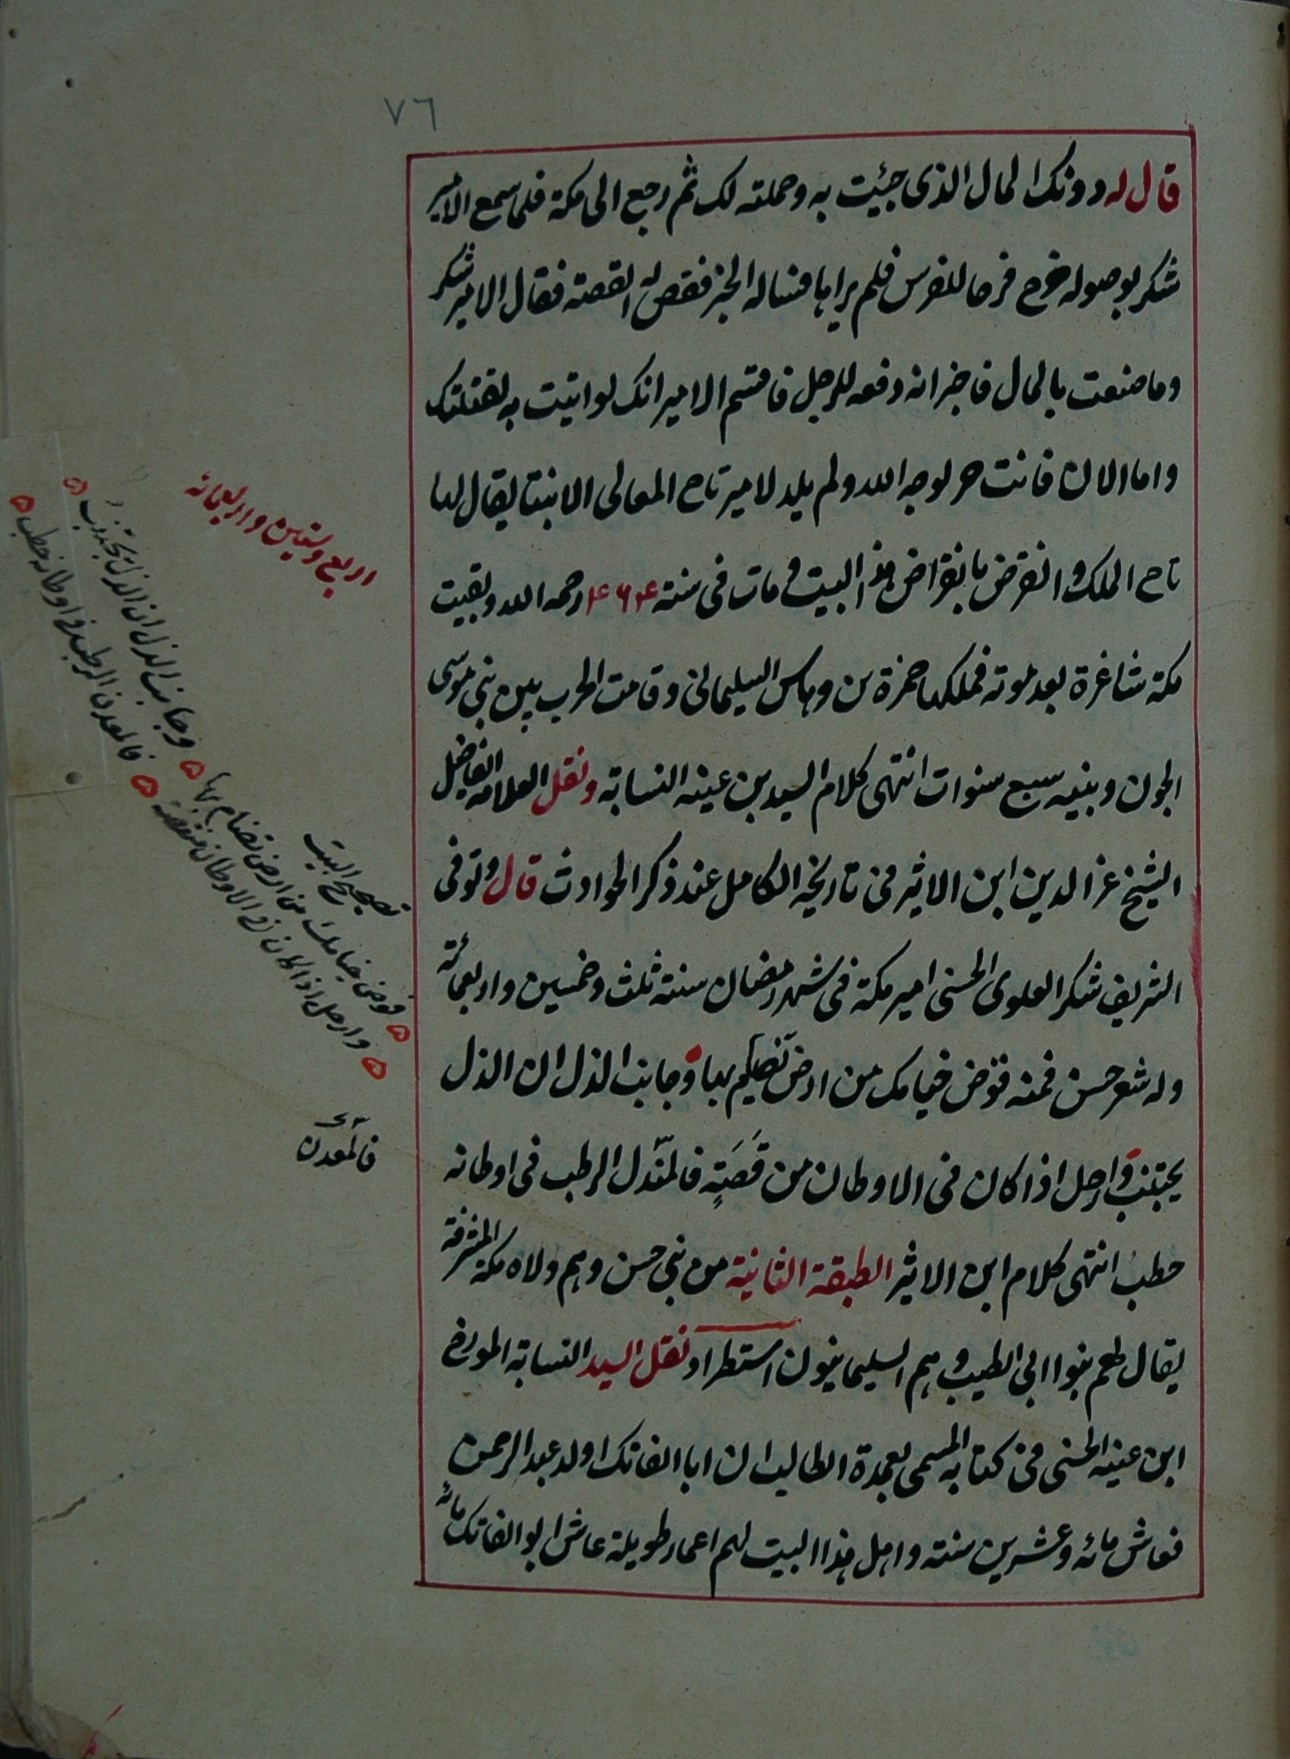 ٧٦
قال له دونك المال الذى جئيت به وحملته لك ثم رجع الى مكة فلما سمع الامير
شكر بوصوله خرج فرحا للفرس فلم يراها فساله الخبر فقص له القصته فقال الامير شكر
وما صنعت بالمال فاخبرانه دفعه للرجل فاقسم الامير انك لو اتيت به لقتلتك
واما الان فانت حر لوجه الله ولم يلد لامير تاج المعالى الا بنتا يقال لها
تاج الملك و انقرض بانقراض هذا البيت و مات فى سنته ۴۶۴ رحمه الله وبقيت
مكة شاغرة بعد موته فملكها حمزة بن وهاس السليمانى وقامت الحرب بين بنى موسى
الجون وبنيه سبع سنوات انتهى كلام السيد بن عينه النسابة ونقل العلامه الفاضل
الشيخ عز الدين ابن الاثير فى تاريخه الكامل عند ذكر الحوادث قال وتوفى
الشريف شكر العلوى الحسنى امير مكة فى شهر رمضان سنته ثلث وخمسين واربعمائة
وله شعر حسن فمنه قوض خيامك من ارض تضيكم بها وجانب الذل ان الذل
يجتنب وارحل اذا كان فى الاوطان من قَصَتِه فالمندل الرطب فى اوطانه
حطب انتهى كلام ابن الاثير الطبقة الثانية من بنى حسن وهم ولاه مكة المشرفة
يقال لهم بنوا ابى الطيب وهم السليمانيون استطرادا ونقل السيد النسابة المورخ
ابن عينه الحسنى فى كتابه المسمى بعمدة الطالب ان ابا الفاتك اولد عبد الرحمن
فعاش مائه وعشرين سنته واهل هذا البيت لهم اعمار طويلة عاش ابو الفاتك مائه
اربع وستين واربعمائه
تصحيح البيت
قوض خيامك من ارض تضام بها
وجانب الذل ان الذل يجتنب
وارحل اذا كان فى الاوطان منقصة
فالمعدن الرطب فى اوطانه حطب
فالمعدن